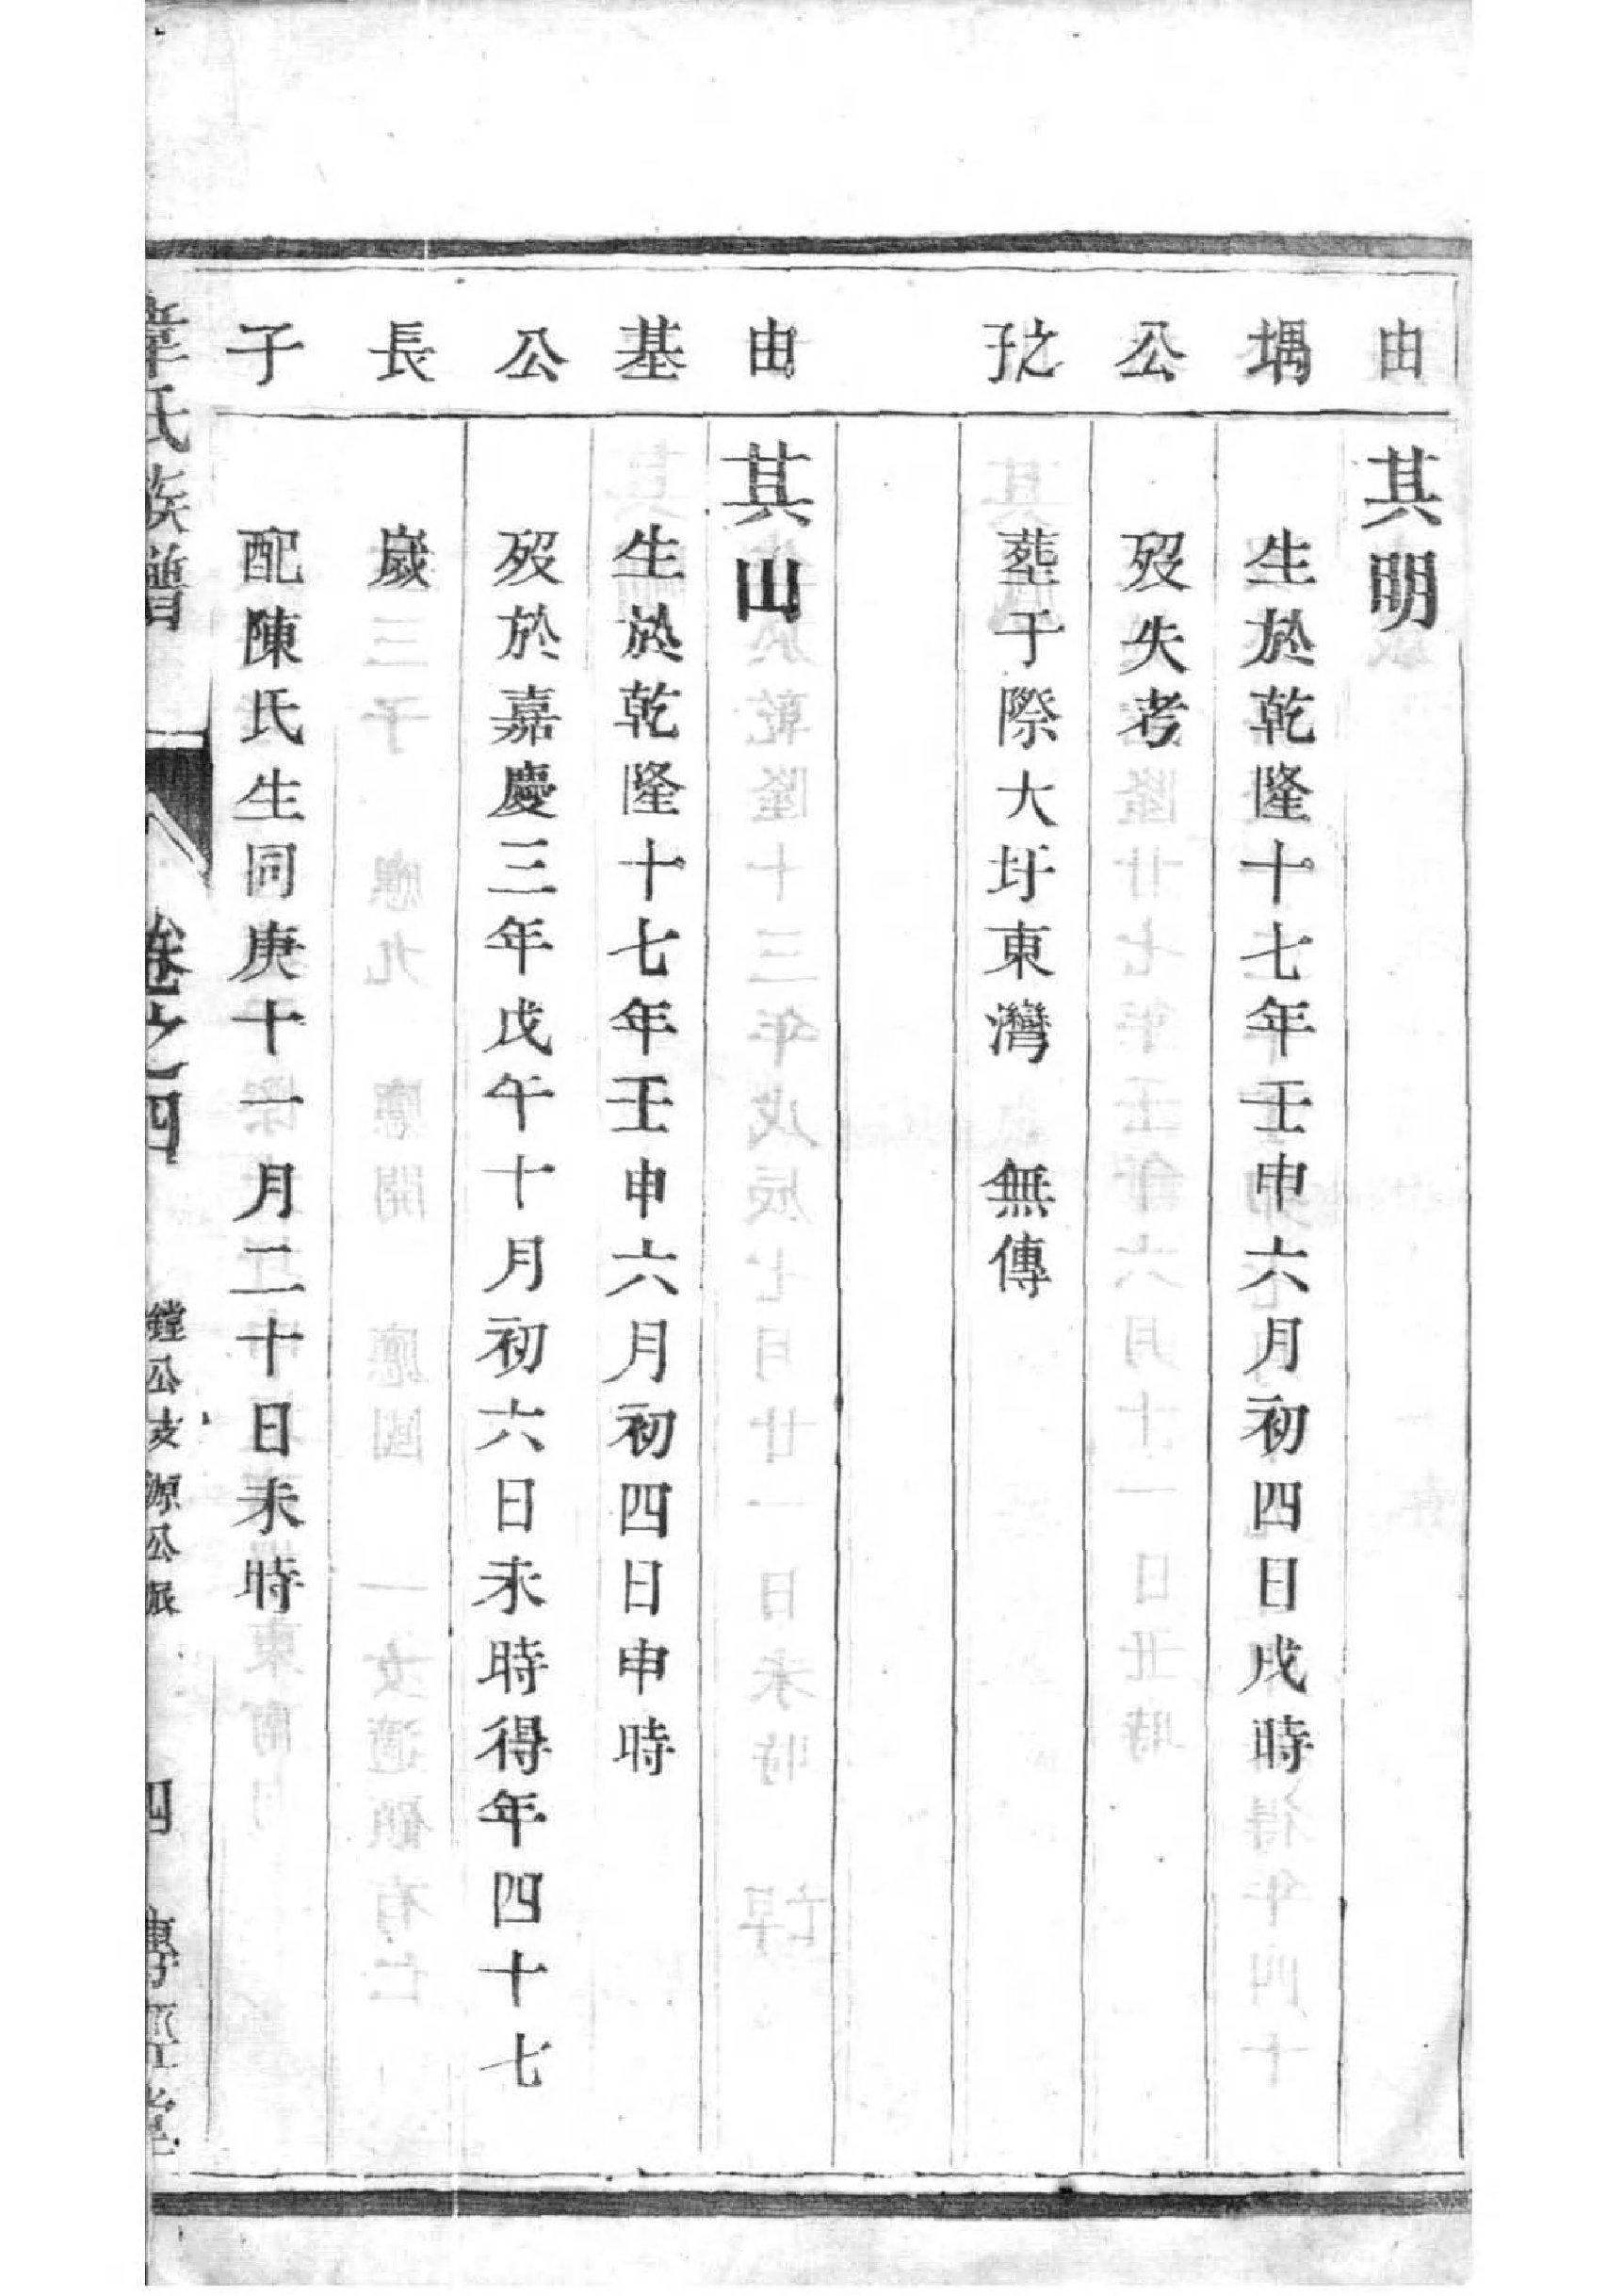 由 其明
堣 生於乾隆十七年壬申六月初四日戌時
公 歿失考
之子 葬于際大圩東灣 無傳
由 其山
基 生於乾隆十七年壬申六月初四日申時
公 歿於嘉慶三年戊午十月初六日未時得年四十七
長 歲
子 配陳氏生同庚十一月二十日未時
韋氏族譜 卷之四 鏜公支源公派 四 傳經堂